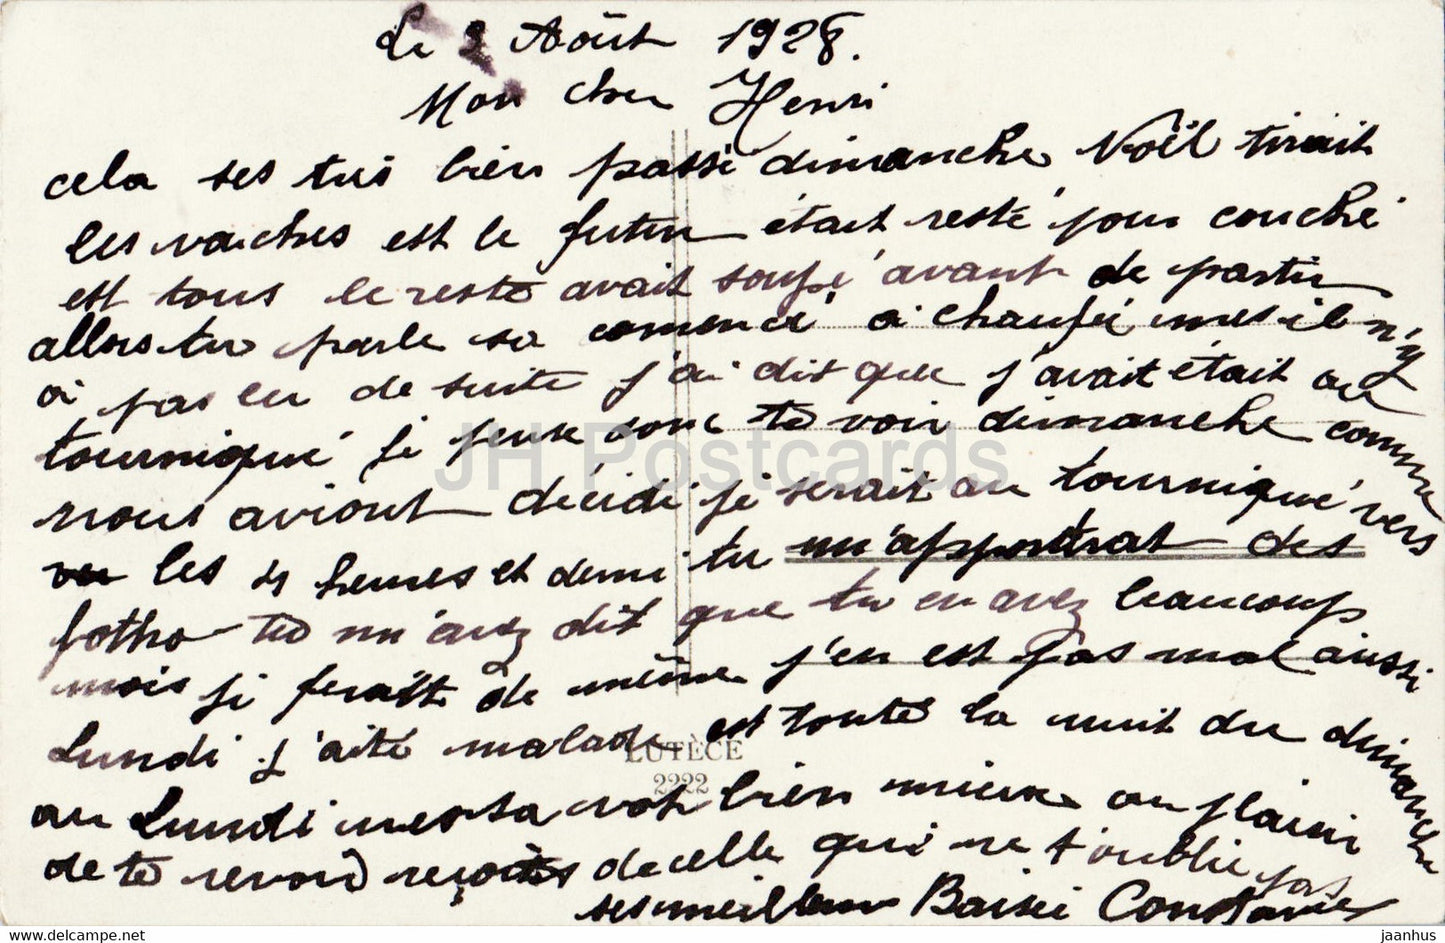 Le 2 Août 1928.
Mon cher Henri
cela ses très bien passé dimanche Noël tirait
les vaiches est le futur était resté pour couché
est tous le reste avait soupé avant de partir
allors tu parle sa comencé a chaufé mes il n'y
a pas eu de suite j'ai dit que j'avait était au
tourniqué je peux donc te voir dimanche comme
nous aviont décidé je serait au tourniqué vers
les 4 heures et demi tu m'apportrat des
fotho tu m'avez dit que tu en avez beaucoup
mois je ferait de même j'en est pas mal aussi
Lundi j'aité malade est toute la nuit du dimanche
au Lundi mes sa vat bien mieux au plaisir
de te revoir reçoites de celle qui ne t'oublie pas
ses meilleur Baisé Constance
LUTÈCE
2222
JH Postcards
hip-postcard.com jaanhus